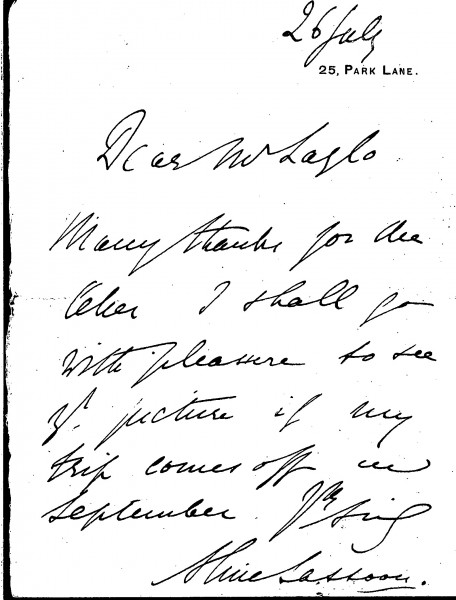 26 July
25, PARK LANE.
Dear Mr Laszlo
Many thanks for the
letter I shall go
with pleasure to see
yr. picture if my
trip comes off in
September. Yrs sincly
Aline Sassoon.